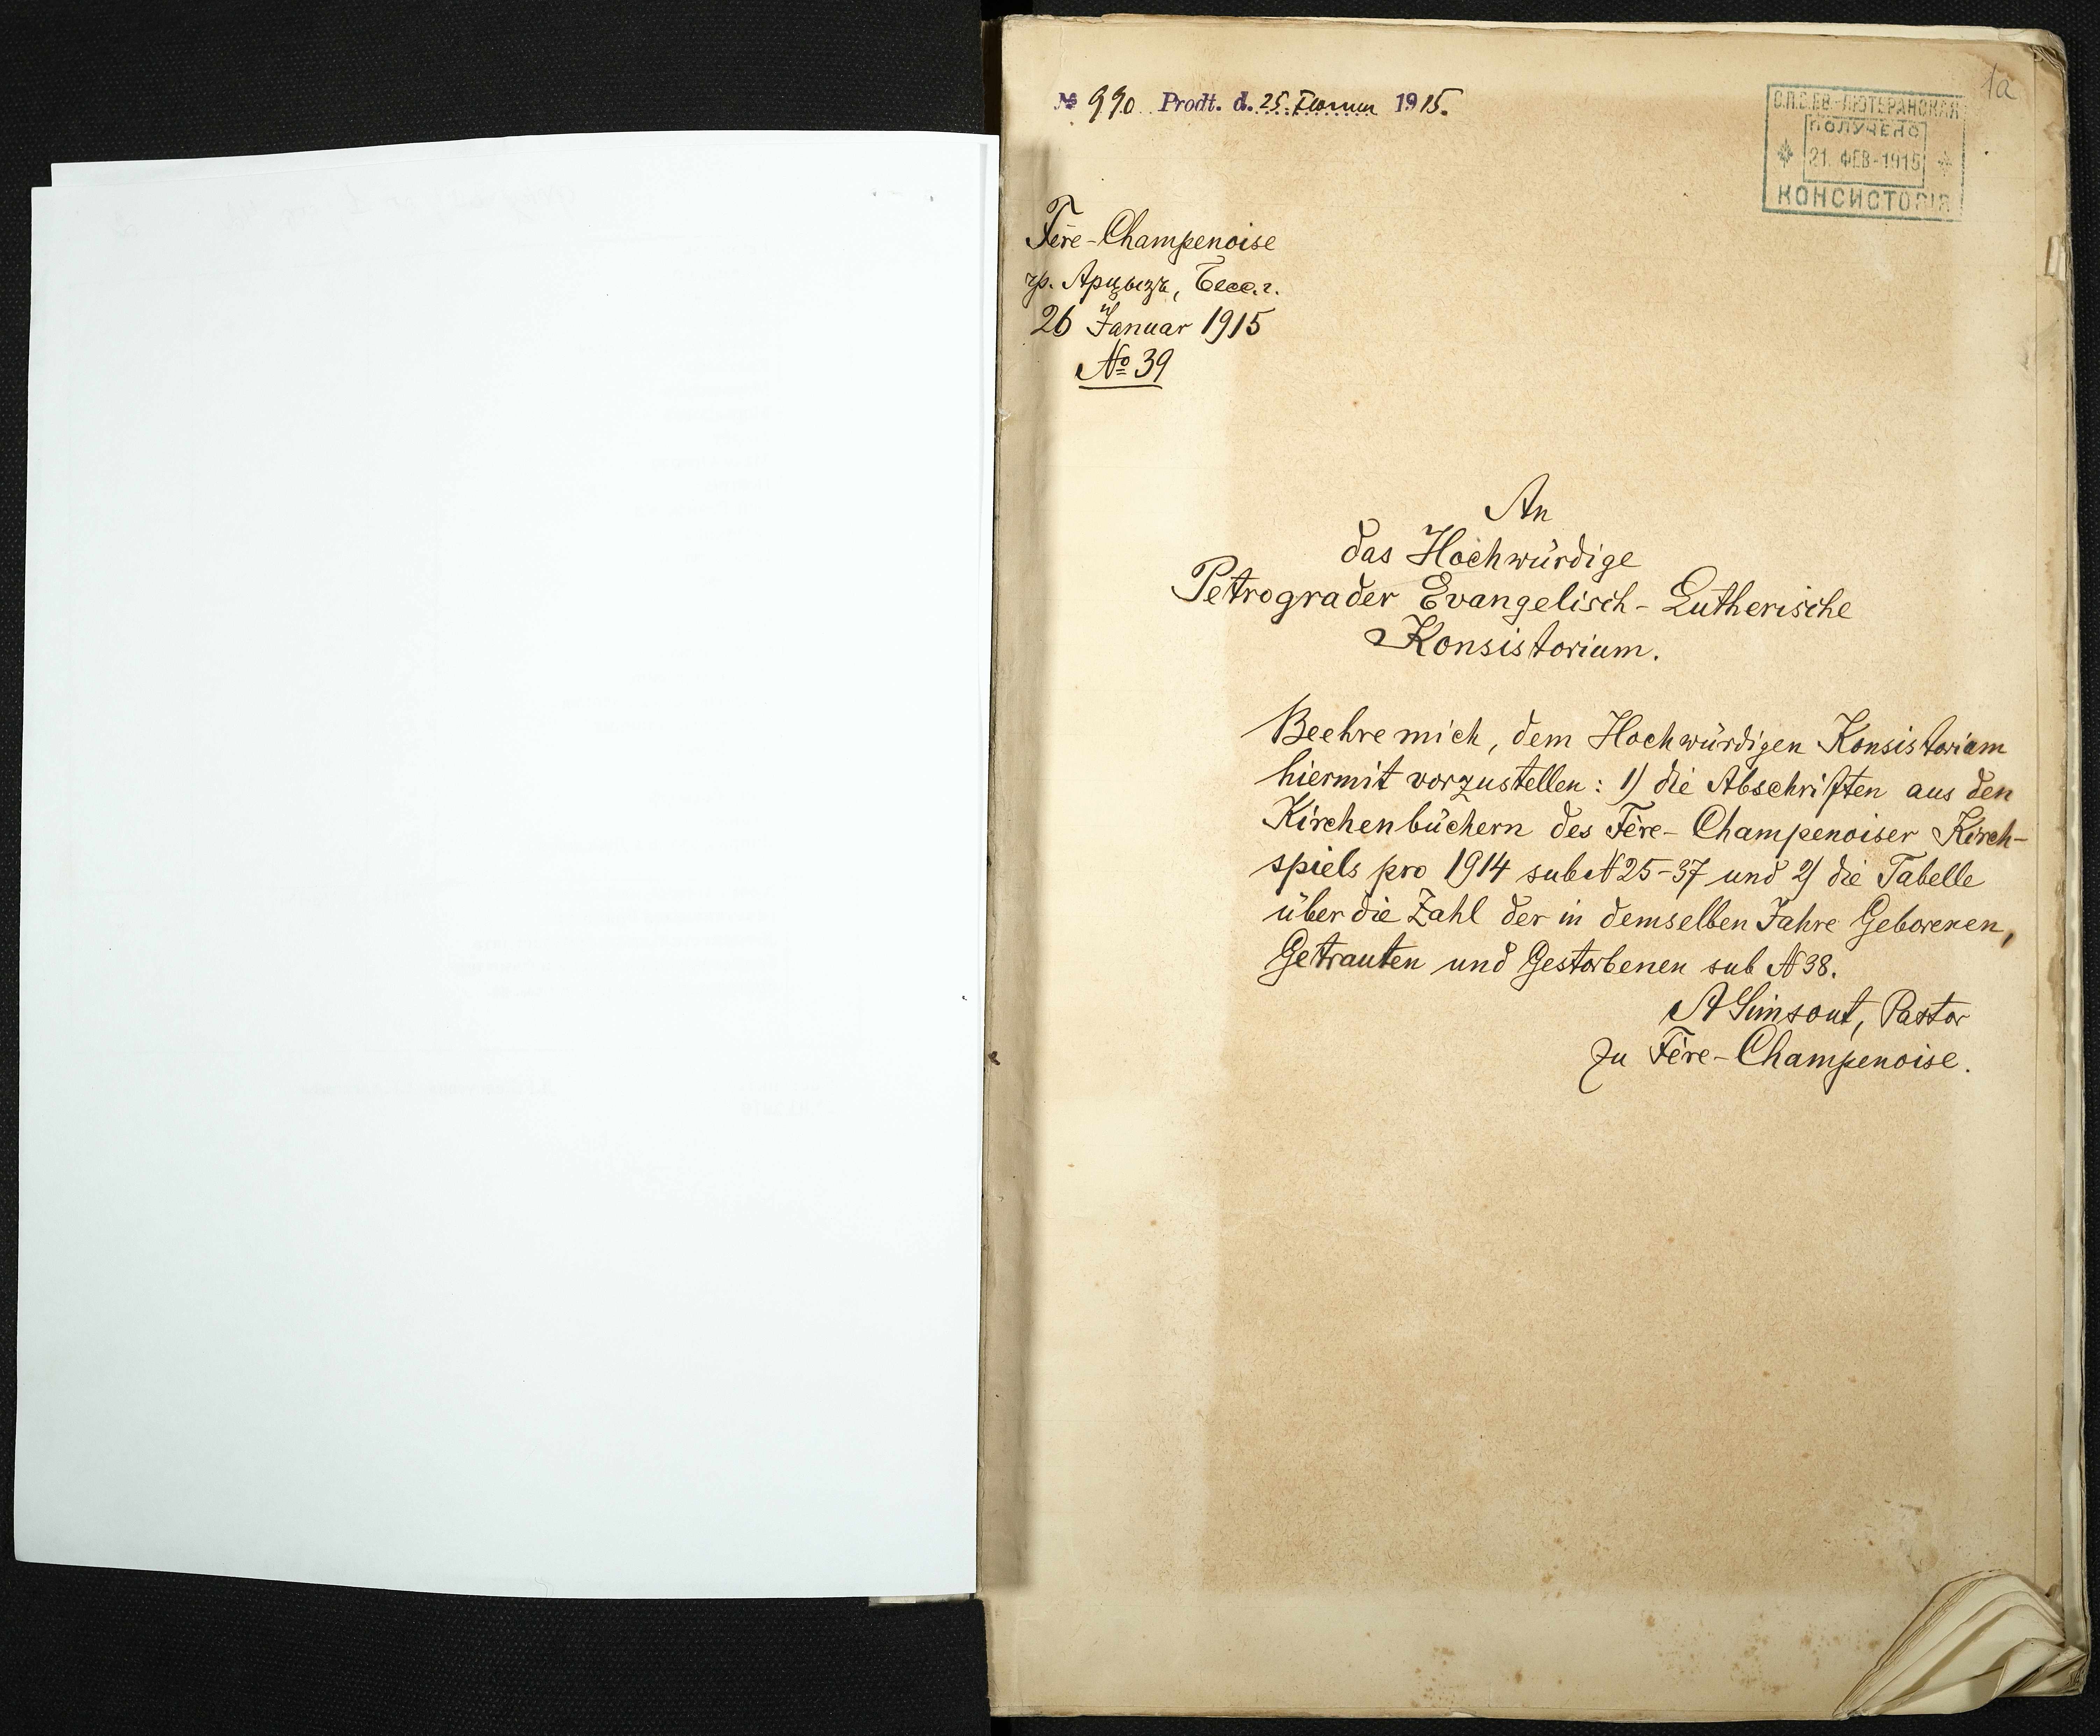 № 990 Prodt. d. 25. Februar 1915.
1a
С.П.Б. ЕВ.-ЛЮТЕРАНСКАЯ
ПОЛУЧЕНО
21. ФЕВ-1915
КОНСИСТОРІЯ
Fère-Champenoise
чр. Арцызъ, Бесс. г.
26 Januar 1915
№ 39
An
das Hochwürdige
Petrograder Evangelisch-Lutherische
Konsistorium.
Beehre mich, dem Hochwürdigen Konsistorium
hiermit vorzustellen: 1) die Abschriften aus den
Kirchenbüchern des Fère-Champenoiser Kirch-
spiels pro 1914 sub N 25-37 und 2) die Tabelle
über die Zahl der in demselben Jahre Geborenen,
Getrauten und Gestorbenen sub N 38.
Pastor
zu Fère-Champenoise.